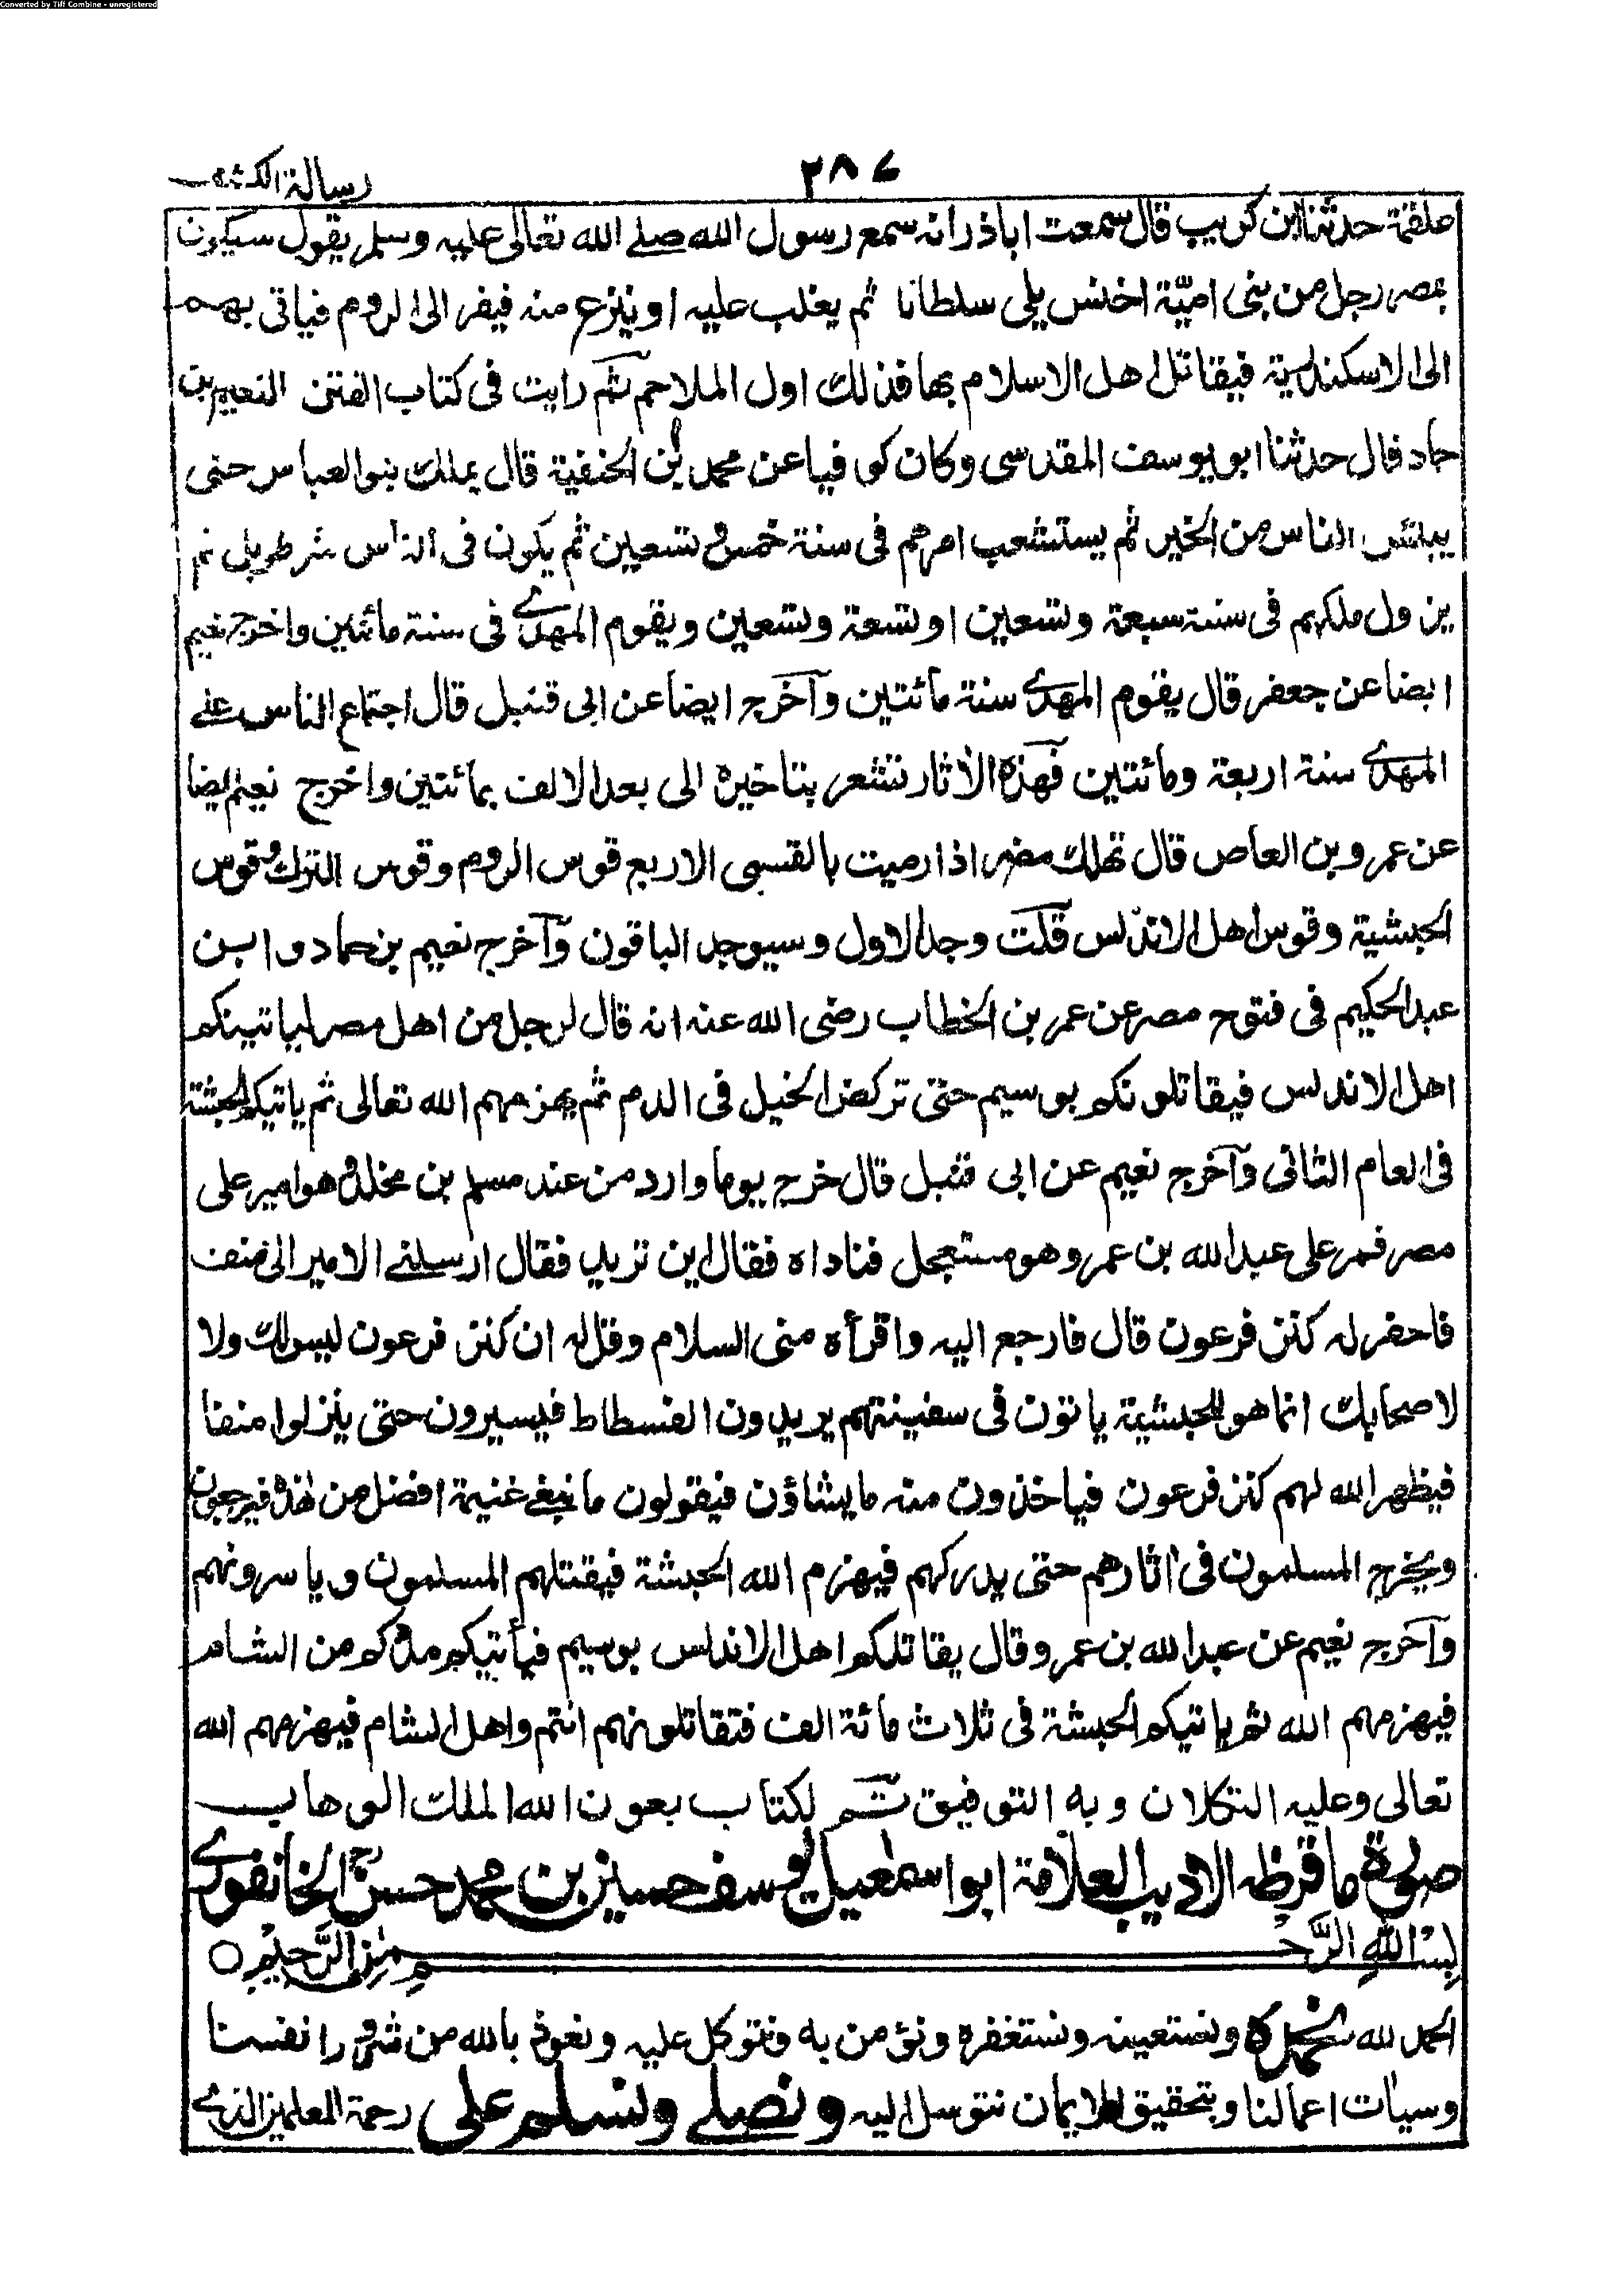 Converted by Tiff Combine - unregistered
٢٨٧
رسالة الكشف
علقمة حدثنا ابن كريب قال سمعت اباذر انه سمع رسول الله صلے الله تعالى عليه وسلم يقول سيكون
بمصر رجل من بنى اميّة اخنس يلى سلطانا ثم يغلب عليه او ينزع منه فيفر الى الروم فياتى بهم
الى الاسكندرية فيقاتل اهل الاسلام بها فذلك اول الملاحم ثم رايت فى كتاب الفتن النعيم بن
حماد قال حدثنا ابو يوسف المقدسى وكان كوفيا عن محمد بن الحنفية قال يملك بنو العباس حتى
يبأس الناس من الخير ثم يستشعب امرهم فى سنة خمس وتسعين ثم يكون فى الناس شر طويل ثم
يزول ملكهم فى سنة سبعة وتسعين او تسعة وتسعين ويقوم المهدے فى سنة مائتين واخرج نعيم
ايضا عن جعفر قال يقوم المهدے سنة مائتين وآخرج ايضا عن ابى قنبل قال اجتماع الناس علے
المهدے سنة اربعة ومائتين فهذه الاثار تشعر بتاخيره الى بعد الالف بمائتين واخرج نعيم ايضا
عن عمرو بن العاص قال تهلك مضر اذا رميت بالقسى الاربع قوس الروم وقوس الترك وقوس
الحبشية وقوس اهل الاندلس قلت وجد الاول وسيوجد الباقون وآخرج نعيم بن حماد وابن
عبد الحكيم فى فتوح مصر عن عمر بن الخطاب رضى الله عنه انه قال لرجل من اهل مصر لياتينكم
اهل الاندلس فيقاتلونكم بوسيم حتى تركض الخيل فى الدم ثم يهزمهم الله تعالى ثم ياتيكم الحبشة
فى العام الثانى وآخرج نعيم عن ابى قنبل قال خرج يوما وارد من عند مسلم بن مخلد وهو امير على
مصر فمر على عبد الله بن عمرو هو مستعجل فناداه فقال اين تريد فقال ارسلنے الامير الى منف
فاحفر له كنز فرعون قال فارجع اليه واقرأه منى السلام وقل له ان كنز فرعون ليس لك ولا
لاصحابك انما هو للحبشية ياتون فى سفينتهم يريدون الفسطاط فيسيرون حتى ينزلوا منفا
فيظهر الله لهم كنز فرعون فياخذون منه ما يشاؤن فيقولون ما نبغے غنيمة افضل من هذه فيرجعون
ويخرج المسلمون فى اثارهم حتى يدركهم فيهزم الله الحبشة فيقتلهم المسلمون وياسرونهم
وآخرج نعيم عن عبد الله بن عمرو قال يقاتلكم اهل الاندلس بوسيم فيأتيكم مددكم من الشام
فيهزمهم الله ثم ياتيكم الحبشة فى ثلاث مائة الف فتقاتلونهم انتم واهل الشام فيهزمهم الله
تعالى وعليه التكلان وبه التوفيق تـم لكتاب بعون الله الملك الوهاب
صورة ما قرظه الاديب العلامة ابو اسمٰعيل يوسف حسين بن محمد حسن الخانفورے
بسم الله الرَّحمٰن الرَّحيم ○
الحمد لله نحمده ونستعينه ونستغفره ونؤمن به ونتوكل عليه ونعوذ بالله من شرور انفسنا
وسيأت اعمالنا وبتحقيق الايمان نتوسل اليه ونصلے ونسلم على رحمة للعلمين الذے